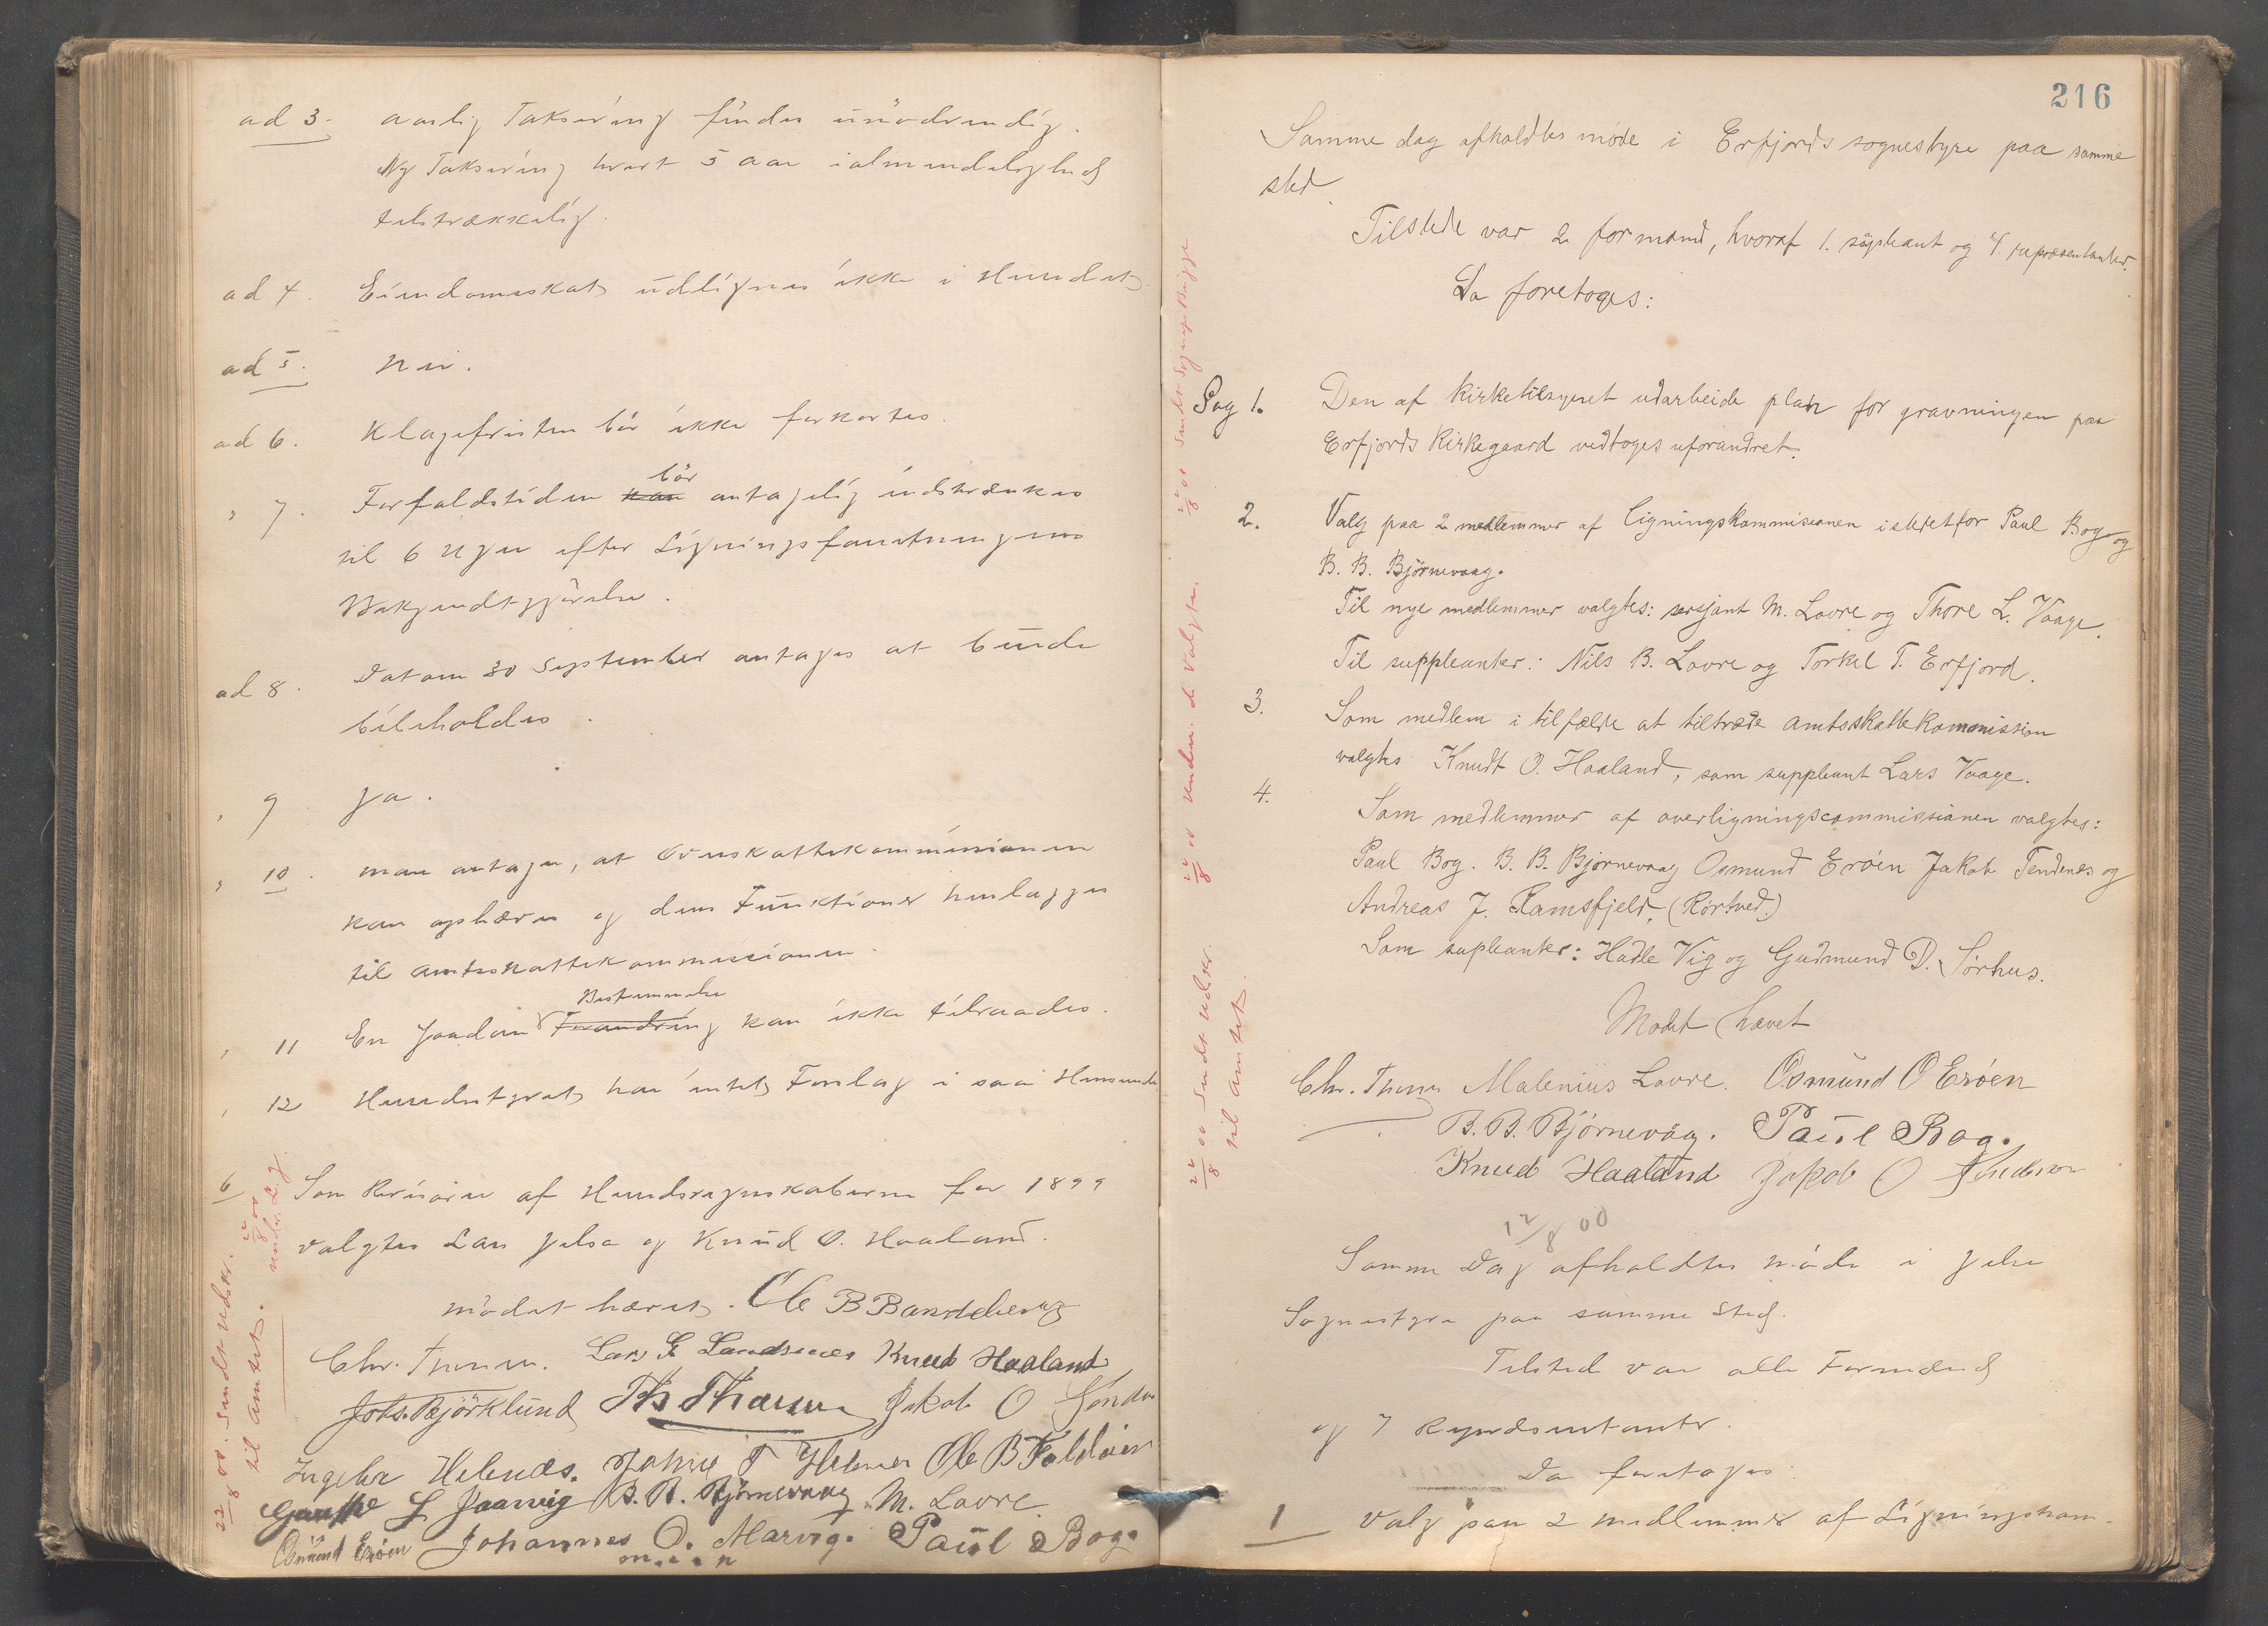 ad 3. Aarlig Taksering findes unödvendig.
Ny Taksering hvert 5 aar i almindelighed
tilstrækkelig.
ad 4. Eiendomsskat udlignes ikke i Herredet.
ad 5. Nei.
ad 6. Klagefristen bör ikke forkortes.
" 7. Forfaldstiden kan bör antagelig indskrænkes
til 6 Uger efter Ligningsforretningens
Bekjendtgjörelse.
ad 8. Datoen 30 September antages at burde
bibeholdes.
" 9 Ja.
" 10. Man antager, at Overskattekommissionen
kan ophæves og dens Funktioner henlægges
til Amtsskattekommissionen.
" 11 En saadan Forandring Bestemmelse kan ikke tilraades.
" 12 Herredsstyret har intet Forslag i saa Henseende
6 Som Revisorer af Herredsregnskaberne for 1899
valgtes Lars Jelsa og Knud O. Haaland.
Mödet hævet. Ole B
Chr. Lars G Landsnes Knud Haaland
Johs. Björklund Th Jakob O
Ingebr Helenæs. T Ole B Foldöen
L B. B. Björnevaag M. Lovre
Osmund Eröen Johannes O. Marvig. Paul Bog.
22/8 00. Sendt udskr.
til Amtet.
216
Samme dag afholdtes möde i Erfjords sognestyre paa samme
sted.
Tilstede var 2 formænd, hvoraf 1. supleant og 4 repræsentanter.
Da foretoges:
Sag 1. Den af Kirketilsynet udarbeide plan for gravningen paa
Erfjords Kirkegaard vedtoges uforandret.
2. Valg paa 2 medlemmer af ligningskommisionen istedetfor Paul Bog og
B. B. Björnevaag.
Til nye medlemmer valgtes: sersjant M. Lovre og Thore L. Vaage.
Til suppleanter: Nils B. Lovre og Torkel T. Erfjord.
3. Som medlem i tilfælde at tiltræde amtsskatteKommission
valgtes Knudt O. Haaland, som suppleant Lars Vaage.
4. Som medlemmer af overligningscommissionen valgtes:
Paul Bog. B. B. Björnevaag Osmund Eröen Jakob Tendenes og
Andreas J. Ramsfjeld. (Rörtved.)
Som supleanter: Hadle Vig og Gudmund D. Sörhus.
Mödet hævet
Chr. Malenius Lovre. Osmund O Eröen
B. B. Björnevåg. Paul Bog.
Knud Haaland Jakob O
12/8 00
Samme Dag afholdtes möde i Jelse
Sognestyre paa samme Sted.
Tilstede var alle Formænd
og 7 Repræsentanter.
Da foretoges:
1 Valg paa 2 medlemmer af Ligningskom-
22/8 00 Sendt udskr.
til Amtet.